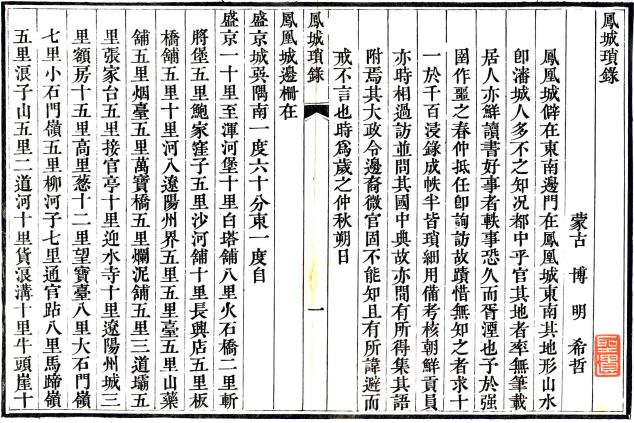 鳳城瑣錄
蒙古 博明 希哲
鳳凰城僻在東南邊門在鳳凰城東南其地形山水
卽瀋城人多不之知况都中乎官其地者率無筆載
居人亦鮮讀書好事者軼事恐久而胥湮也予於强
圉作噩之春仲抵任卽詢訪故蹟惜無知之者求十
一於千百浸錄成帙半皆瑣細用備考核朝鮮貢員
亦時相過訪並問其國中典故亦間有所得集其語
附焉其大政令邊裔微官固不能知且有所諱避而
戒不言也時爲歲之仲秋朔日
鳳城瑣錄 一
鳳凰城邊柵在
盛京城巽隅南一度六十分東一度自
盛京一十里至渾河堡十里白塔舖八里火石橋二里斬
將堡五里鮑家窪子五里沙河舖十里長興店五里板
橋舖五里十里河入遼陽州界五里五里臺五里山藥
舖五里烟臺五里萬寶橋五里爛泥舖五里三道壩五
里張家台五里接官亭十里迎水寺十里遼陽州城三
里額房十五里高里葱十二里望寶臺八里大石門嶺
七里小石門嶺五里柳河子七里通官跕八里馬蹄嶺
五里浪子山五里二道河十里貨浪溝十里牛頭崖十